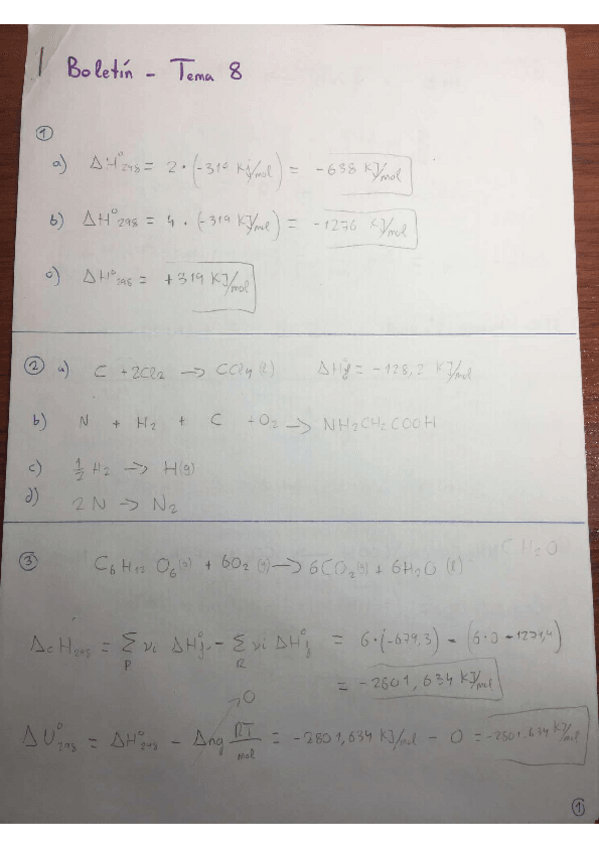 Boletín - Tema 8
①
a) ΔH°298 = 2 · (-319 KJ/mol) = -638 KJ/mol
b) ΔH°298 = 4 · (-319 KJ/mol) = -1276 KJ/mol
c) ΔH°298 = +319 KJ/mol
② a) C + 2Cl2 → CCl4(l) ΔHf = -128,2 KJ/mol
b) N + H2 + C + O2 → NH2CH2COOH
c) 1/2 H2 → H(g)
d) 2N → N2
③ C6H12O6(s) + 6O2(g) → 6CO2(g) + 6H2O(l)
ΔcH298 = Σ νi ΔH°f - Σ νi ΔH°f = 6·(-679,3) - (6·0 - 1274,4)
P R
= -2801,634 KJ/mol
0
ΔU°298 = ΔH°298 - Δng RT/mol = -2801,634 KJ/mol - 0 = -2801,634 KJ/mol
①